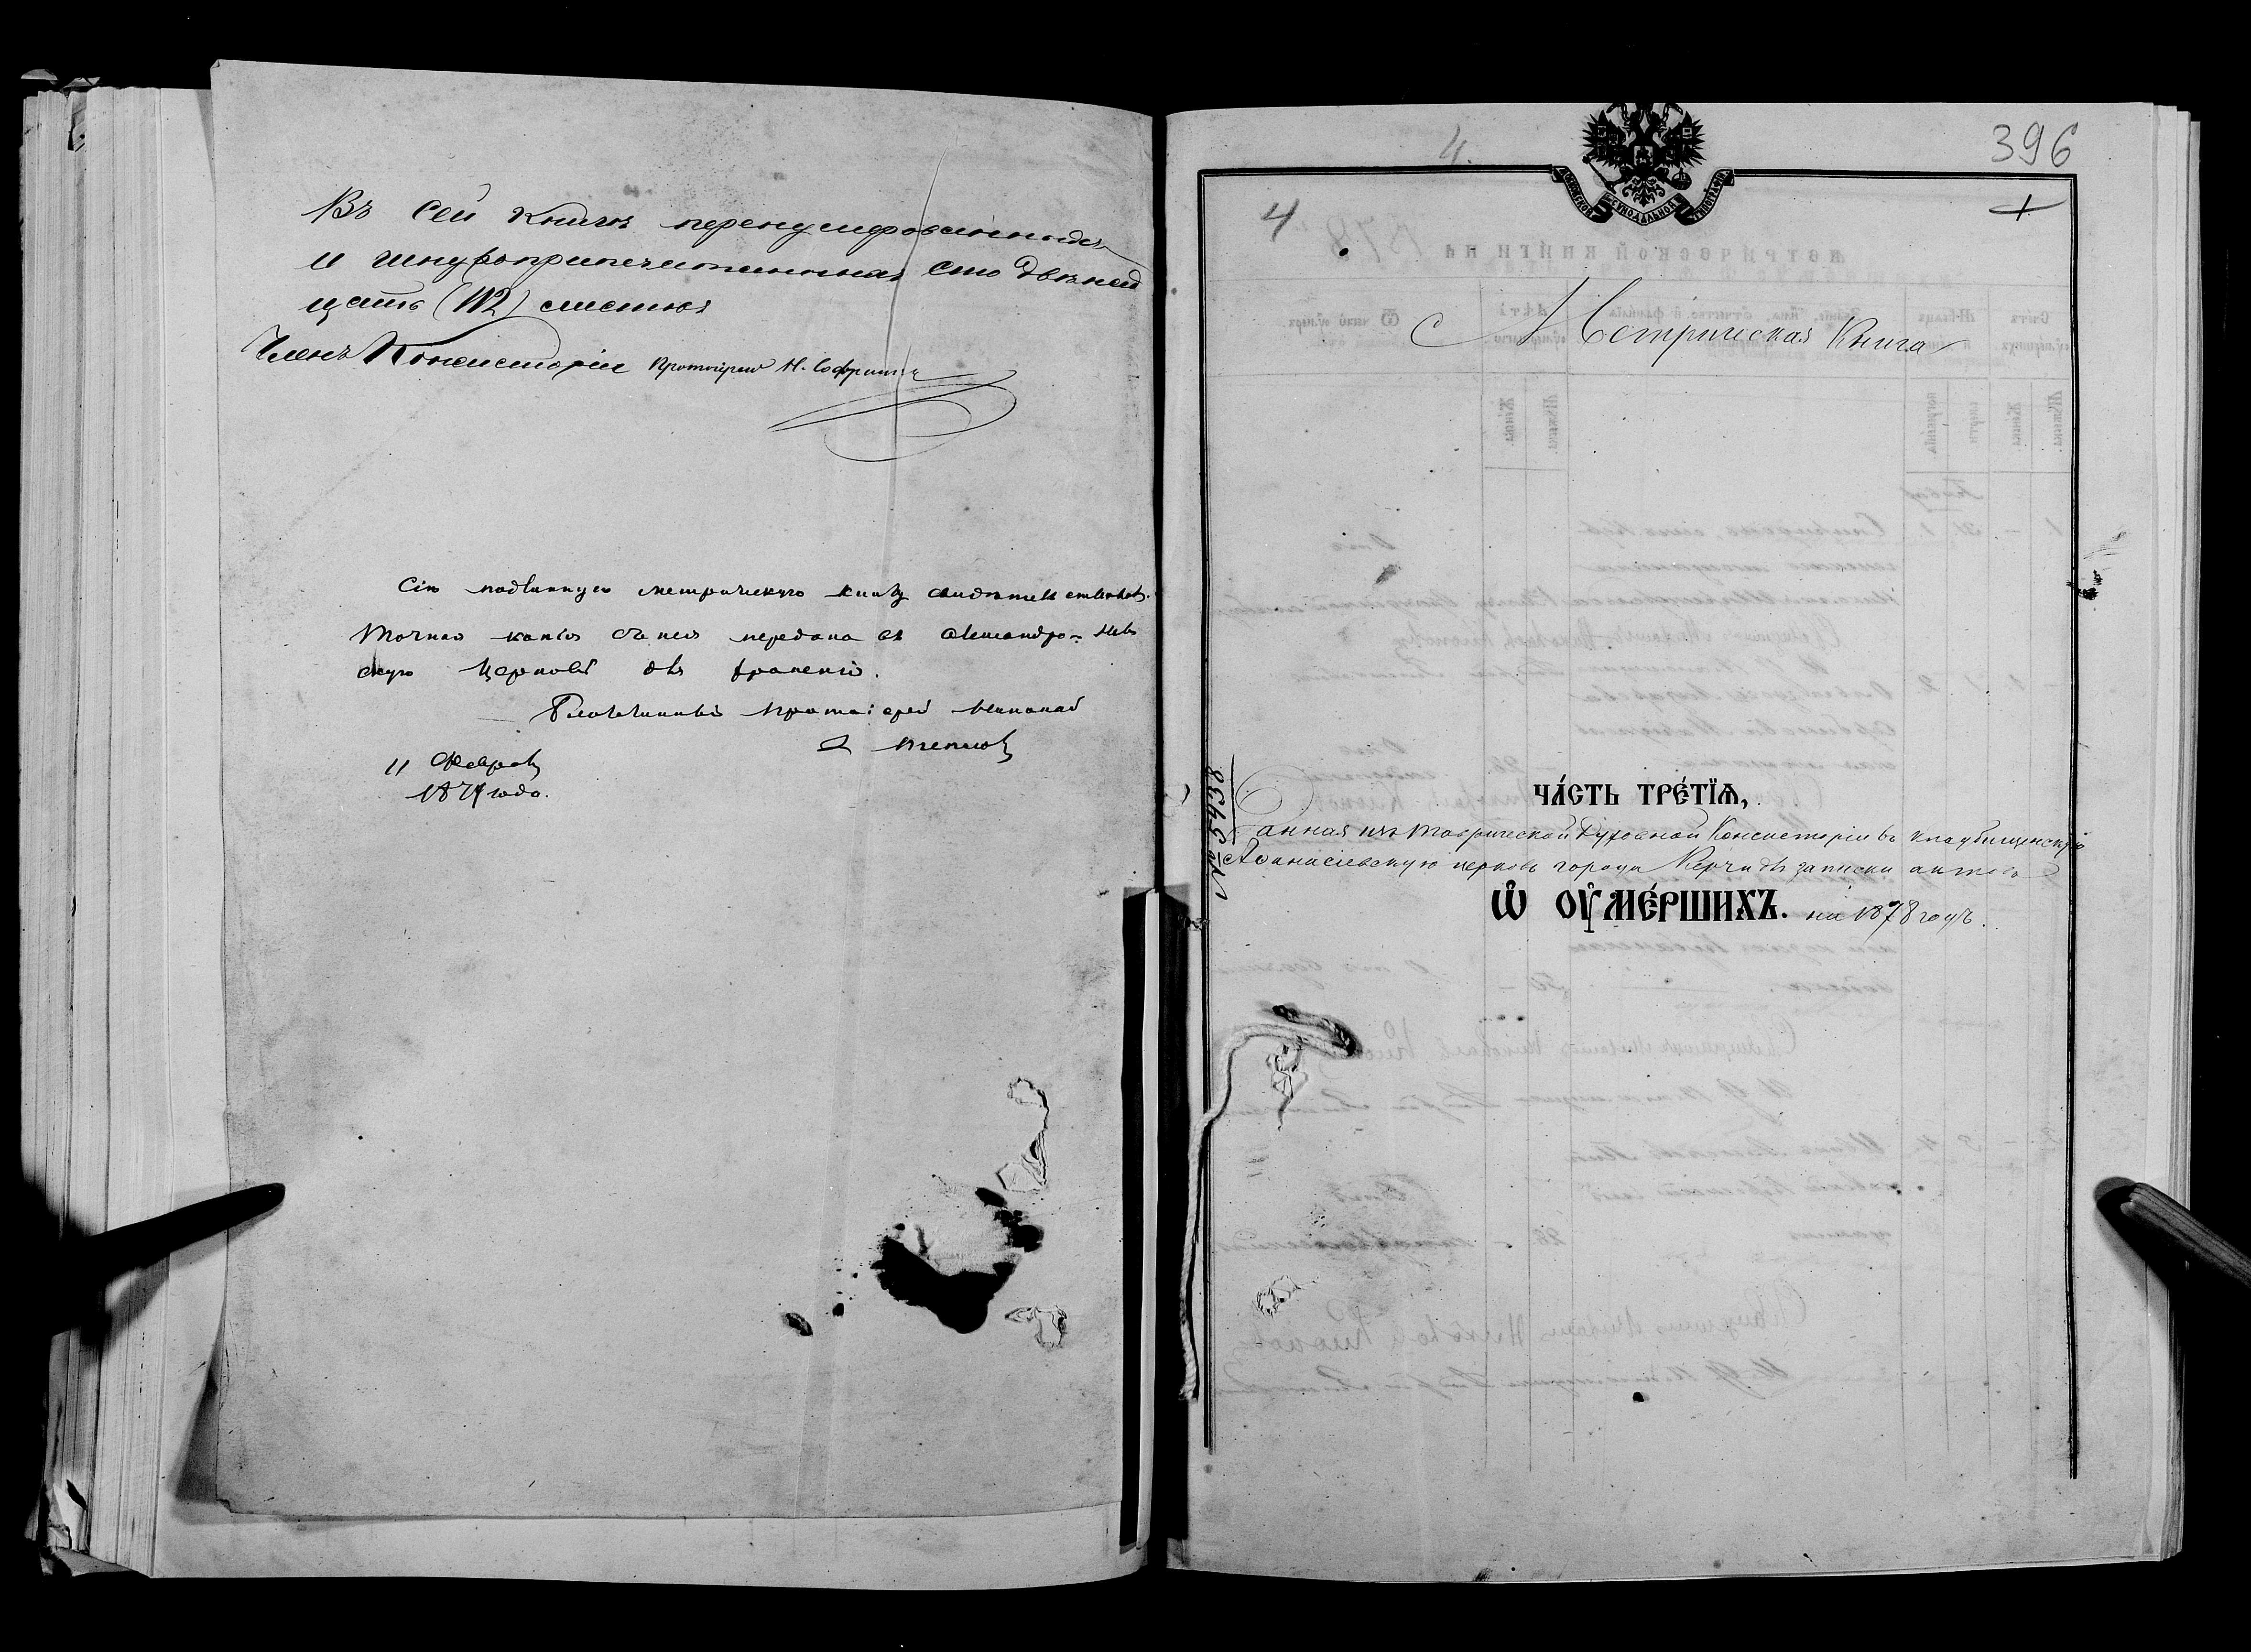 Въ сей книгѣ перенумерованныхъ
и шнуроприпечатанныхъ сто двѣнад
цать (112) листовъ
Членъ Консисторіи Протоіерей Н. Софр
Сію подлинную метрическую книгу свидѣтельствовалъ.
Точная копія съ нея передана въ Александро-Нев
скую Церковь для храненія.
Благочинный Протоіерей
11 Февраля
187 года.
4.
396
МОСКОВСКОЙ СѴНОДАЛЬНОЙ ТИПОГРАФІИ
4
Метрическая Книга
ЧА́СТЬ ТРЕ́ТЇѦ,
Данная изъ Таврической Духовной Консисторіи въ Кладбищенскую
Афанасіевскую церковь города Керчи дл записки актовъ
Ѽ ОУ҆МЕ́РШИХЪ. на 1878 годъ.
№ 3438